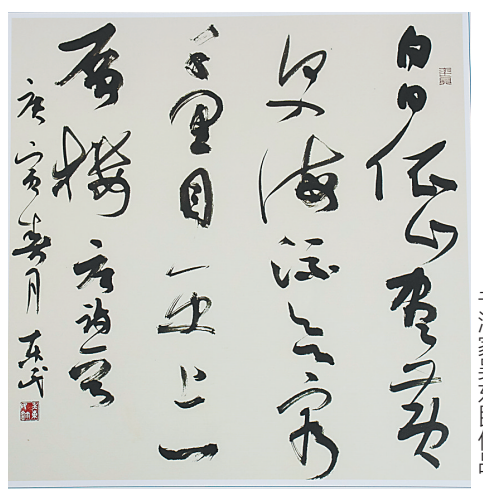 白日依山尽黄
河入海流欲穷
千里目更上一
层楼 唐诗一首
庚寅春月 东民